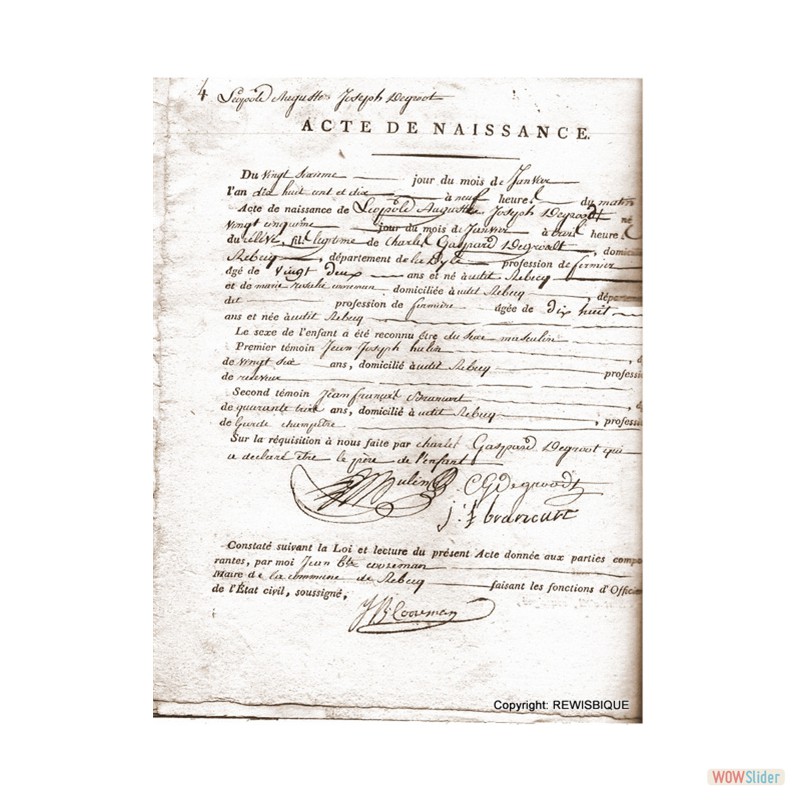 4 Leopold Auguste Joseph Degroot
ACTE DE NAISSANCE.
Du vingt sixieme jour du mois de Janvier
l'an dix huit cent et dix à neuf heure du matin
Acte de naissance de Leopold Auguste Joseph Degroodt né
vingt cinquieme jour du mois de Janvier à heure
du fil legitime de Charle Gaspard Degroodt, domici
Rebecq, département de la Dyle profession de fermier
âgé de vingt deux ans et né audit Rebecq
et de marie domiciliée audit Rebecq départ
dit profession de fermière âgée de dix huit
ans et née audit Rebecq
Le sexe de l'enfant a été reconnu être du sexe masculin
Premier témoin Jean Joseph hulin
de vingt six ans, domicilié audit Rebecq professi
de
Second témoin Jean françois Brancart
de quarante trois ans, domicilié audit Rebecq, profess
de Garde champêtre
Sur la réquisition à nous faite par charles Gaspard Degroot qui
a declaré etre le père de l'enfant
Hulin CG Degroodt
j: f brancart
Constaté suivant la Loi et lecture du présent Acte donnée aux parties compa
rantes, par moi Jean Bte cooreman
Maire de la commune de Rebecq faisant les fonctions d'Officier
de l'État civil, soussigné,
JB Cooreman
Copyright: REWISBIQUE
WOWSlider